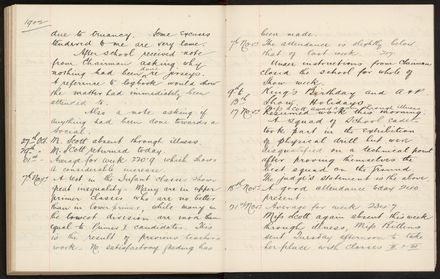 1902
due to truancy. Some excuses
rendered to me are very lame.
After school received note
from Chairman asking why
nothing had been done re
A reference to logbook would show
the matter had immediately been
attended to.
Also a note asking if
anything had been done towards a
Social.
27th Oct. M. Scott absent through illness.
29th " M. Scott returned today.
31st " Average for week 220.9 which shows
a considerable increase.
7th Nov. A test in the Infant classes shows
great inequality. Many are in upper
primer classes who are no better
than in lower primer, while many in
the lowest division are more than
equal to Primer I candidates. This
is the result of previous teachers
work. No satisfactory grading has
been made.
7th Nov. The attendance is slightly below
that of last week
Under instructions from Chairman
closed the school for whole of
Show week
King's Birthday and A & P
Show Holidays
17 Nov. Miss Scott away again through illness
Resumed work this morning
A squad of School Cadets
took part in the exhibition
of physical drill but were
disqualified on a technical point
after proving themselves the
best squad on the ground.
The judge's statement is the above
18th Nov. A good attendance today 240
present
21st Nov. Average for week 230.7
Miss Scott again absent this week
through illness, Miss
sent Tuesday afternoon to take
her place with classes II & III